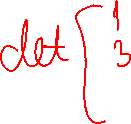 det { 1
3